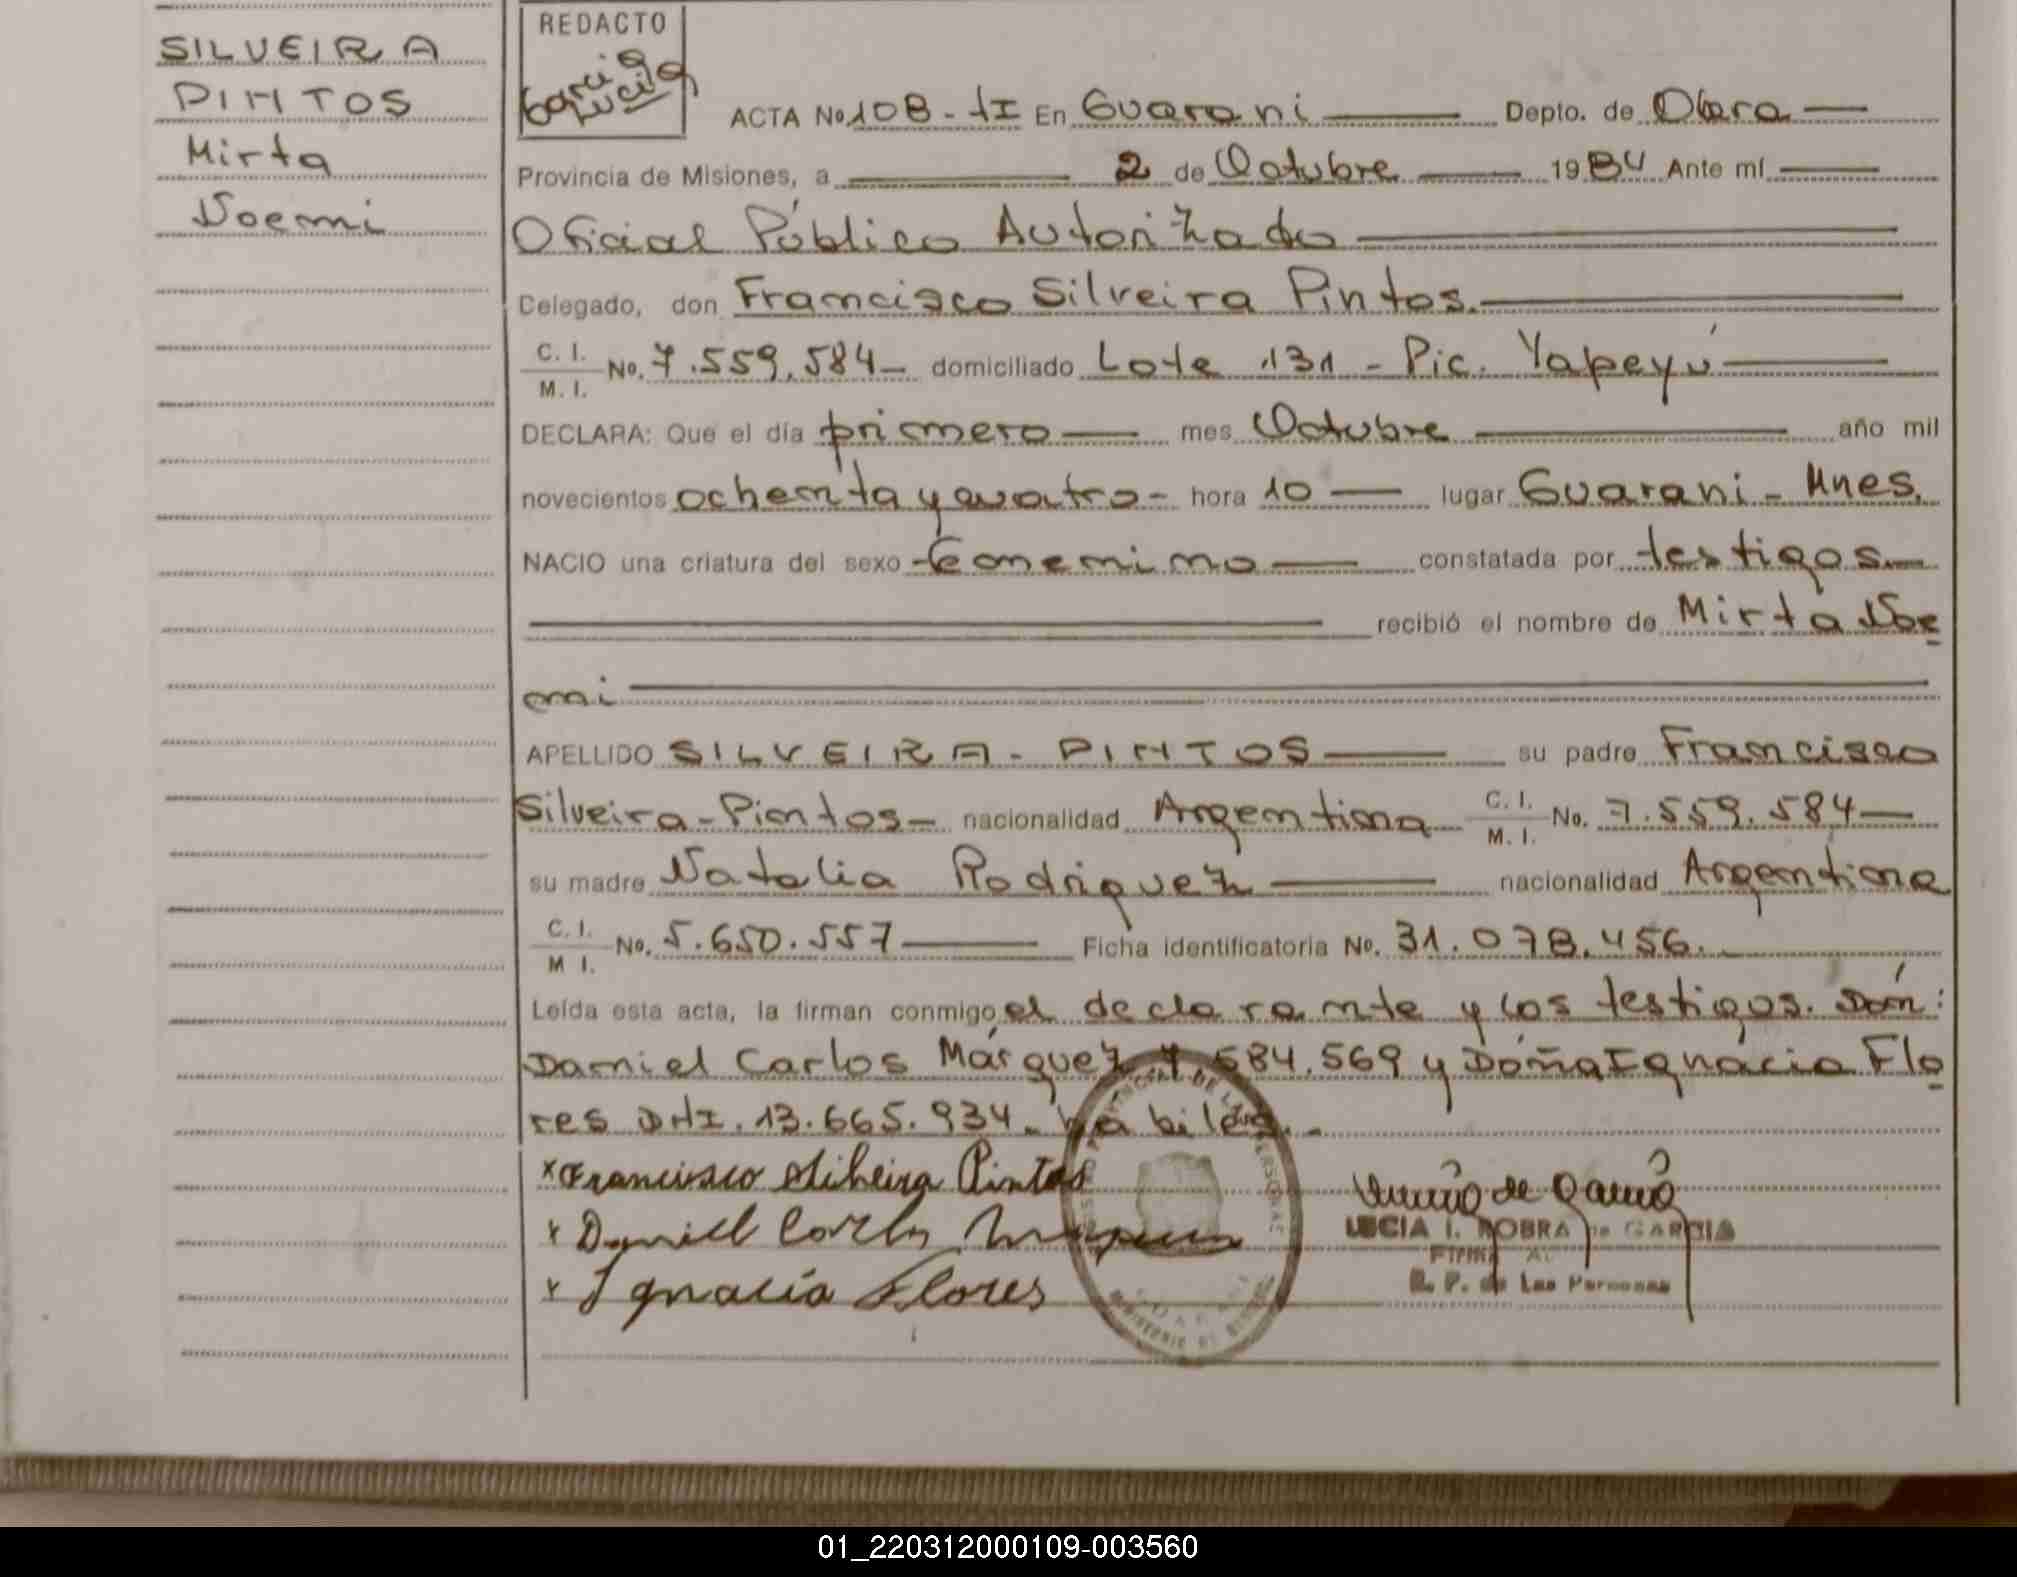 SILVEIRA
PINTOS
Mirta
Noemi
REDACTO
Garcia
Lucila
ACTA No 108 - tI En Guarani Depto. de Obera
Provincia de Misiones, a 2 de Octubre 1984 Ante mí
Oficial Público Autorizado
Celegado, don Francisco Silveira Pintos.
C. I.
M. I. No. 7.559.584 domiciliado Lote 131 - Pic. Yapeyú
DECLARA: Que el día primero mes Octubre año mil
novecientos ochenta y cuatro - hora 10 lugar Guarani - Mnes.
NACIO una criatura del sexo femenino constatada por testigos
recibió el nombre de Mirta Noe
mi
APELLIDO SILVEIRA - PINTOS su padre Francisco
Silveira - Pintos - nacionalidad Argentina C. I.
M. I. No. 7.559.584
su madre Natalia Rodriguez nacionalidad Argentina
C. I.
M I. No. 5.650.557 Ficha identificatoria No. 31.078.456.
Leída esta acta, la firman conmigo el declarante y los testigos. Dón:
Daniel Carlos Márquez 7 584.569 y Doña Ignacia Flo
res DNI. 13.665.934 - hábiles. -
x Francisco Silveira Pintos
x Daniel Carlos
x Ignacia Flores
LUCIA I. ROBRA de GARCIA
R. P. de Las Personas
01_220312000109-003560